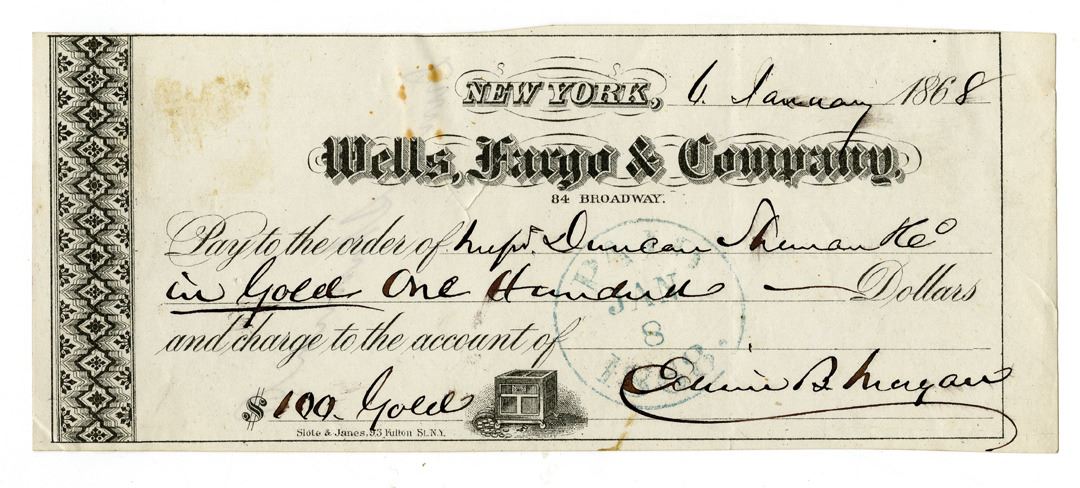 NEW YORK, 6. January 1868
Wells, Fargo & Company.
84 BROADWAY.
Pay to the order of Duncan Sherman & Co
in Gold One Hundred — Dollars
and charge to the account of
Edwin B. Morgan
$ 100. Gold
Slote & Janes, 93 Fulton St. N.Y.
PAID
JAN
8